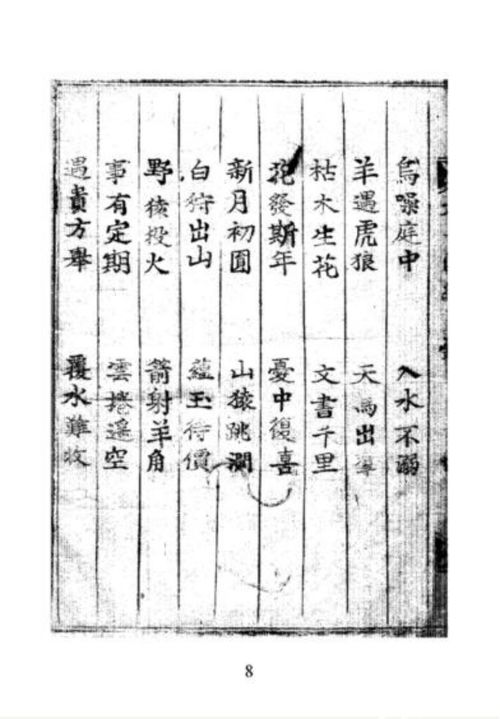 烏噪庭中 入水不溺
羊遇虎狼 天馬出
枯木生花 文書千里
花發斯年 憂中復喜
新月初圓 山猿跳澗
白狩出山 蘊玉待價
野猿投火 箭射羊角
事有定期 雲捲遥空
遇貴方舉 覆水難收
8